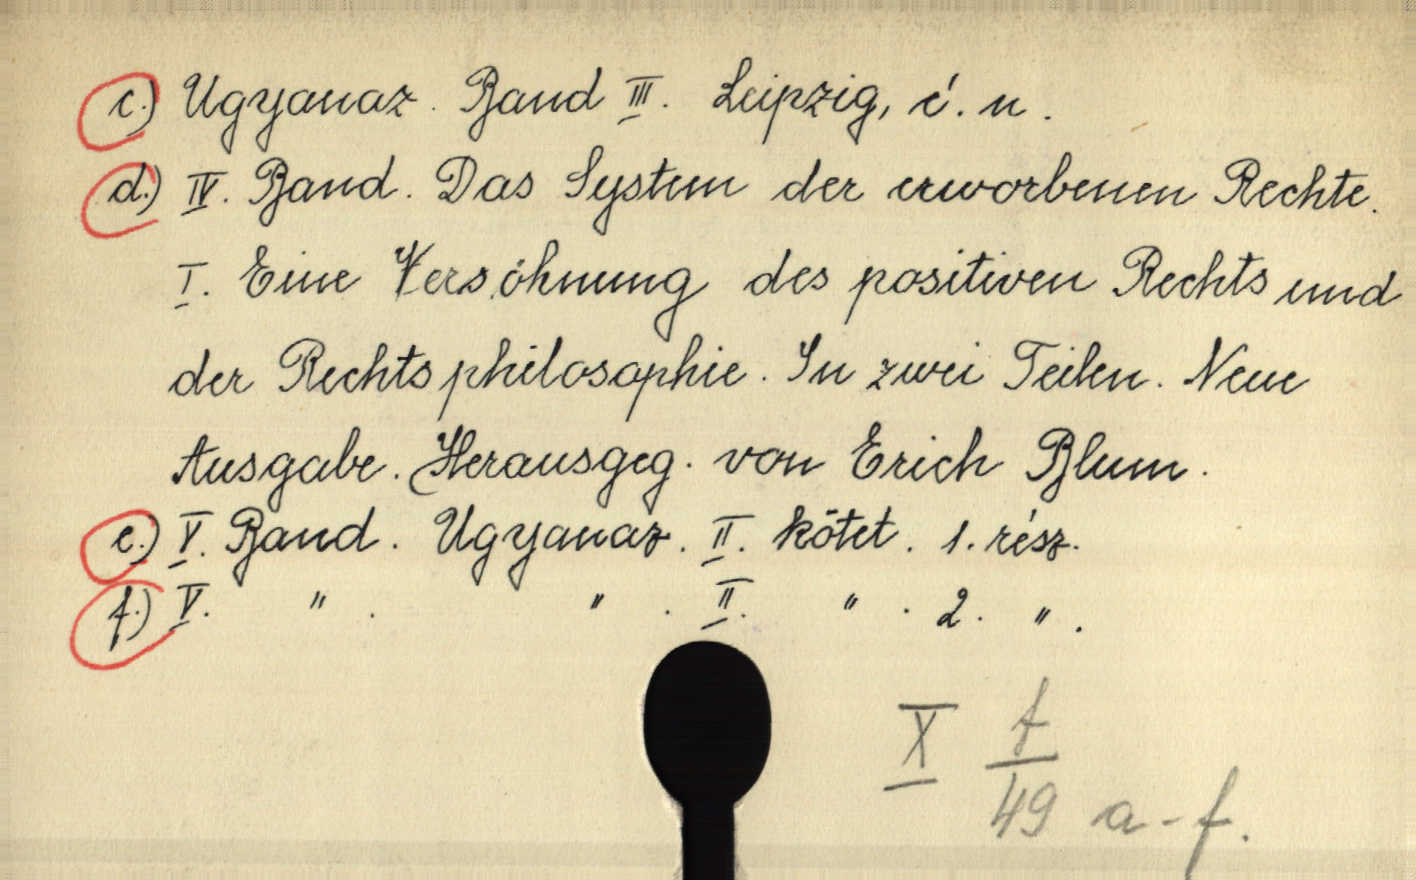 c.) Ugyanaz. Band III. Leipzig, é. n.
d.) IV. Band. Das System der erworbenen Rechte.
I. Eine Versöhnung des positiven Rechts und
der Rechtsphilosophie. In zwei Teilen. Neue
Ausgabe. Herausgeg. von Erich Blum.
e.) V. Band. Ugyanaz. II. kötet. 1. rész.
f.) V. " . " . II. " . 2. " .
X f
49 a-f.